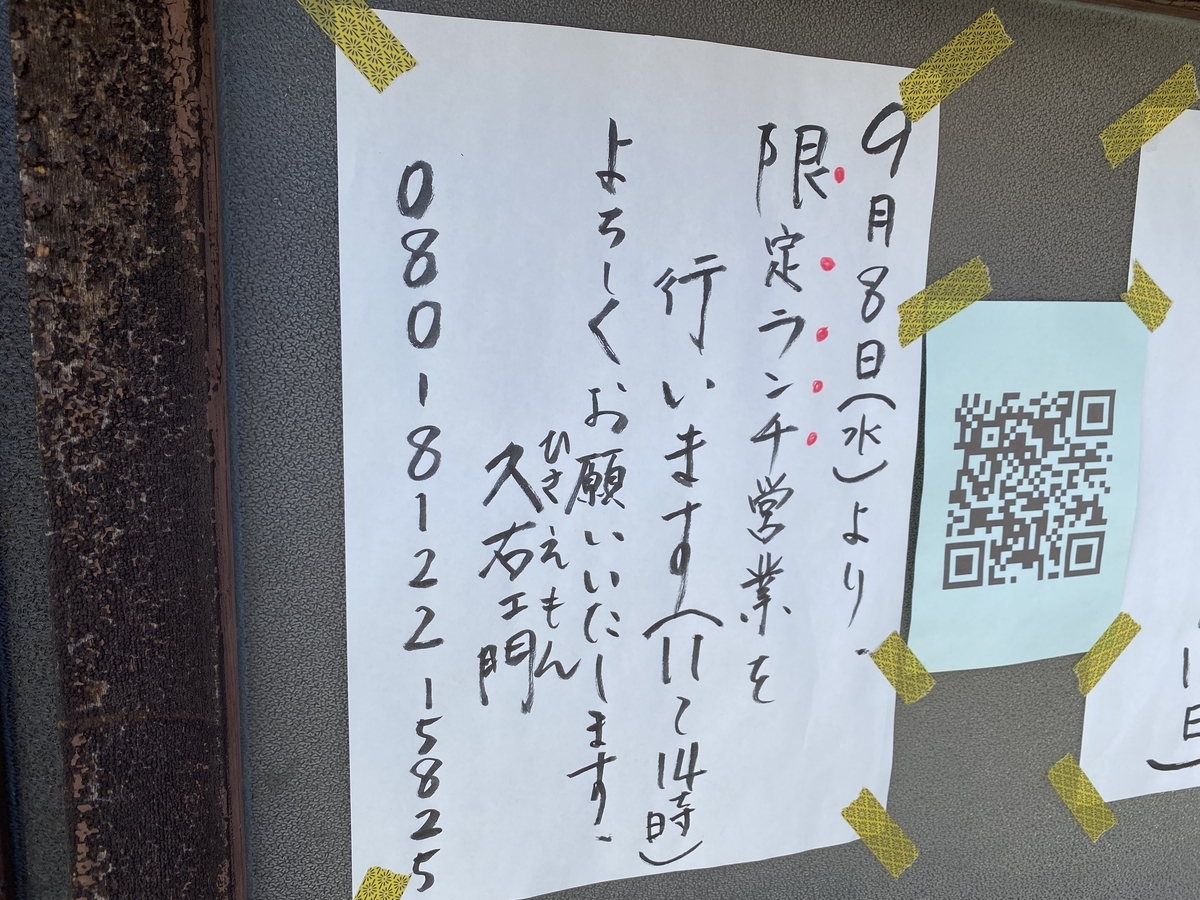 9月8日(水)より
限定ランチ営業を
行います(11〜14時)
よろしくお願いいたします
ひさえもん
久右エ門
080-8122-5825
1日)